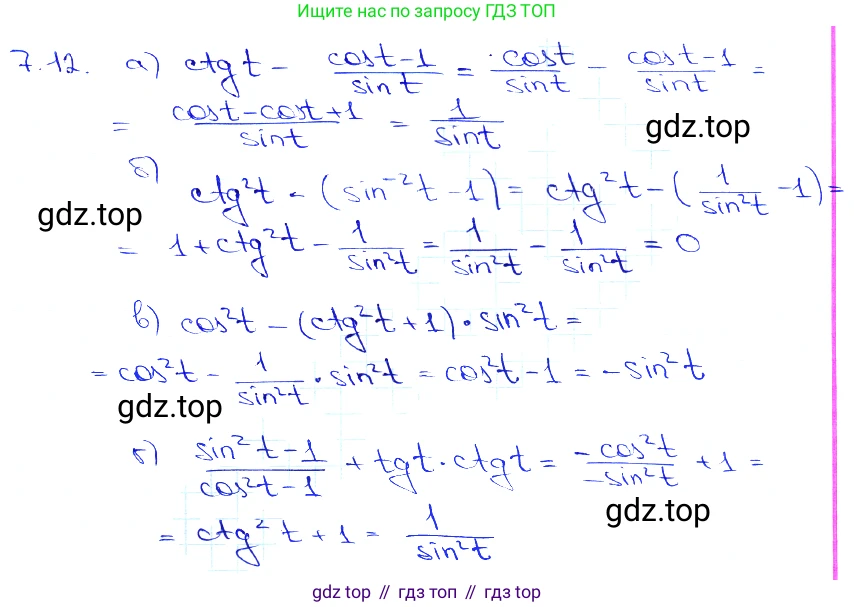 Ищите нас по запросу ГДЗ ТОП
7.12. а) ctg t - (cos t - 1)/(sin t) = (cos t)/(sin t) - (cos t - 1)/(sin t) =
= (cos t - cos t + 1)/(sin t) = 1/(sin t)
gdz.top
б)
ctg²t - (sin⁻²t - 1) = ctg²t - (1/(sin²t) - 1) =
gdz.top
= 1 + ctg²t - 1/(sin²t) = 1/(sin²t) - 1/(sin²t) = 0
в) cos²t - (ctg²t + 1) · sin²t =
= cos²t - 1/(sin²t) · sin²t = cos²t - 1 = -sin²t
gdz.top
г) (sin²t - 1)/(cos²t - 1) + tg t · ctg t = (-cos²t)/(-sin²t) + 1 =
gdz.top
= ctg² t + 1 = 1/(sin²t)
gdz.top // гдз топ // гдз.top